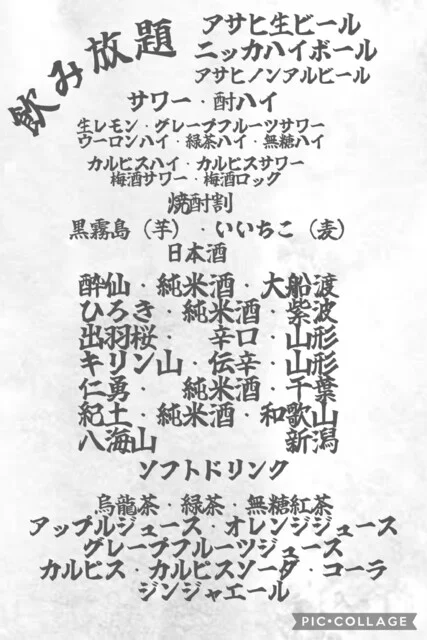 飲み放題
アサヒ生ビール
ニッカハイボール
アサヒノンアルビール
サワー・酎ハイ
生レモン・グレープフルーツサワー
ウーロンハイ・緑茶ハイ・無糖ハイ
カルピスハイ・カルピスサワー
梅酒サワー・梅酒ロック
焼酎割
黒霧島(芋)・いいちこ(麦)
日本酒
酔仙・純米酒・大船渡
ひろき・純米酒・紫波
出羽桜・辛口・山形
キリン山・伝辛・山形
仁勇・純米酒・千葉
紀土・純米酒・和歌山
八海山 新潟
ソフトドリンク
烏龍茶・緑茶・無糖紅茶
アップルジュース・オレンジジュース
グレープフルーツジュース
カルピス・カルピスソーダ・コーラ
ジンジャエール
PIC•COLLAGE